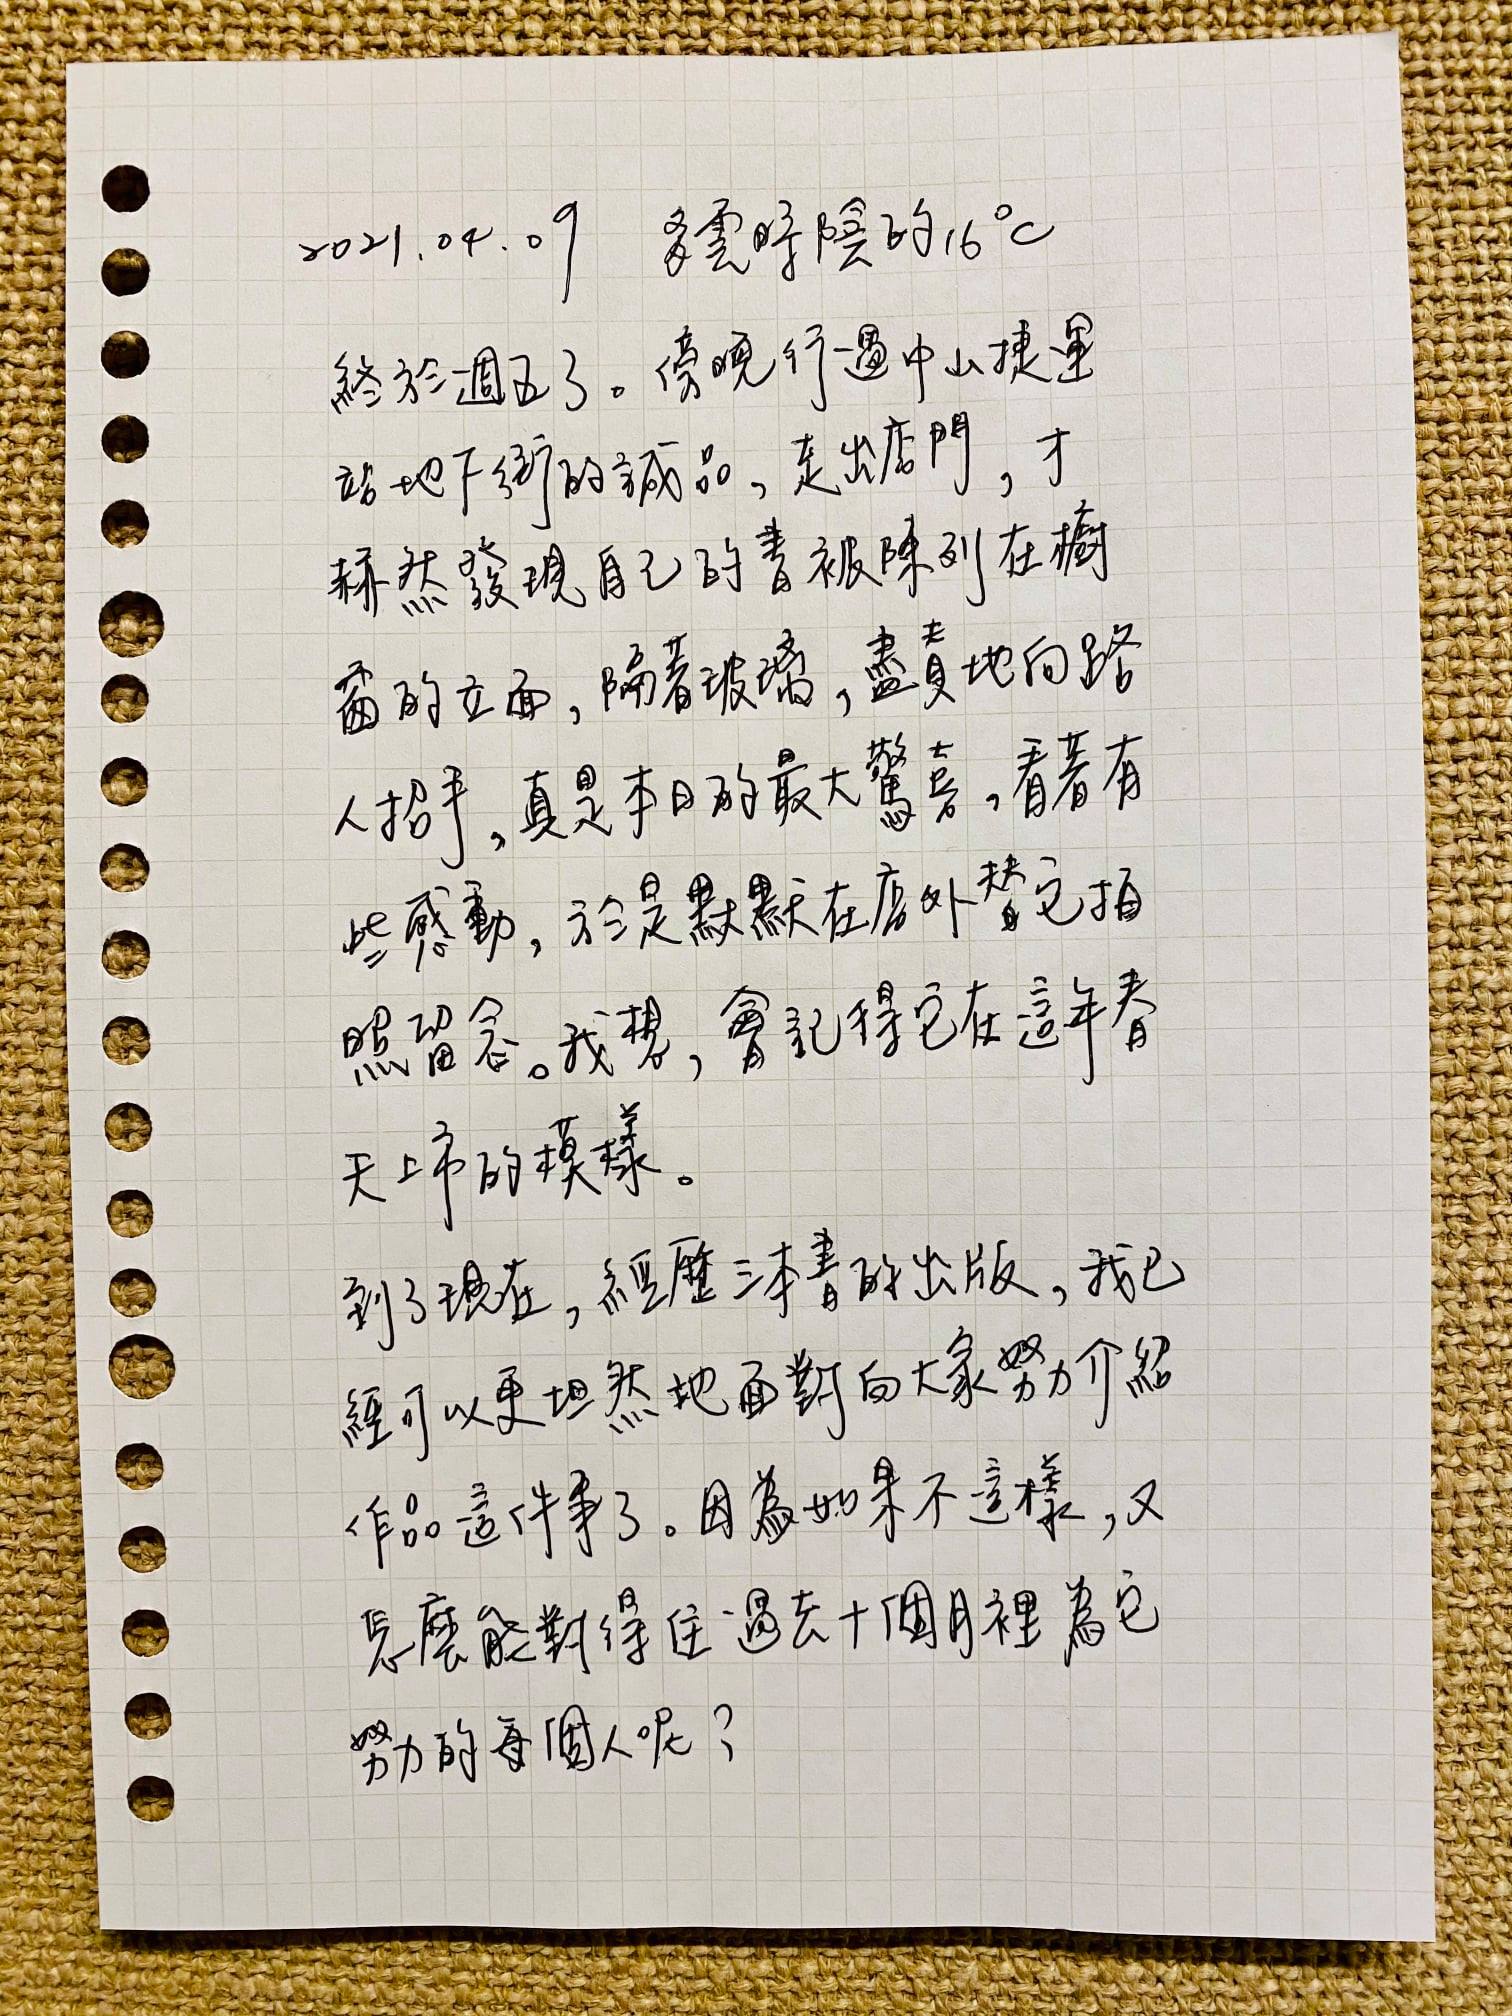 2021.04.09 多雲時陰的16°C
終於週五了。傍晚行過中山捷運
站地下街的誠品，走出店門，才
赫然發現自己的書被陳列在櫥
窗的立面，隔著玻璃，盡責地向路
人招手，真是本日的最大驚喜，看著有
些感動，於是默默在店外替它拍
照留念。我想，會記得它在這年春
天上市的模樣。
到了現在，經歷三本書的出版，我已
經可以更坦然地面對向大家努力介紹
作品這件事了。因為如果不這樣，又
怎麼能對得住過去十個月裡為它
努力的每個人呢？